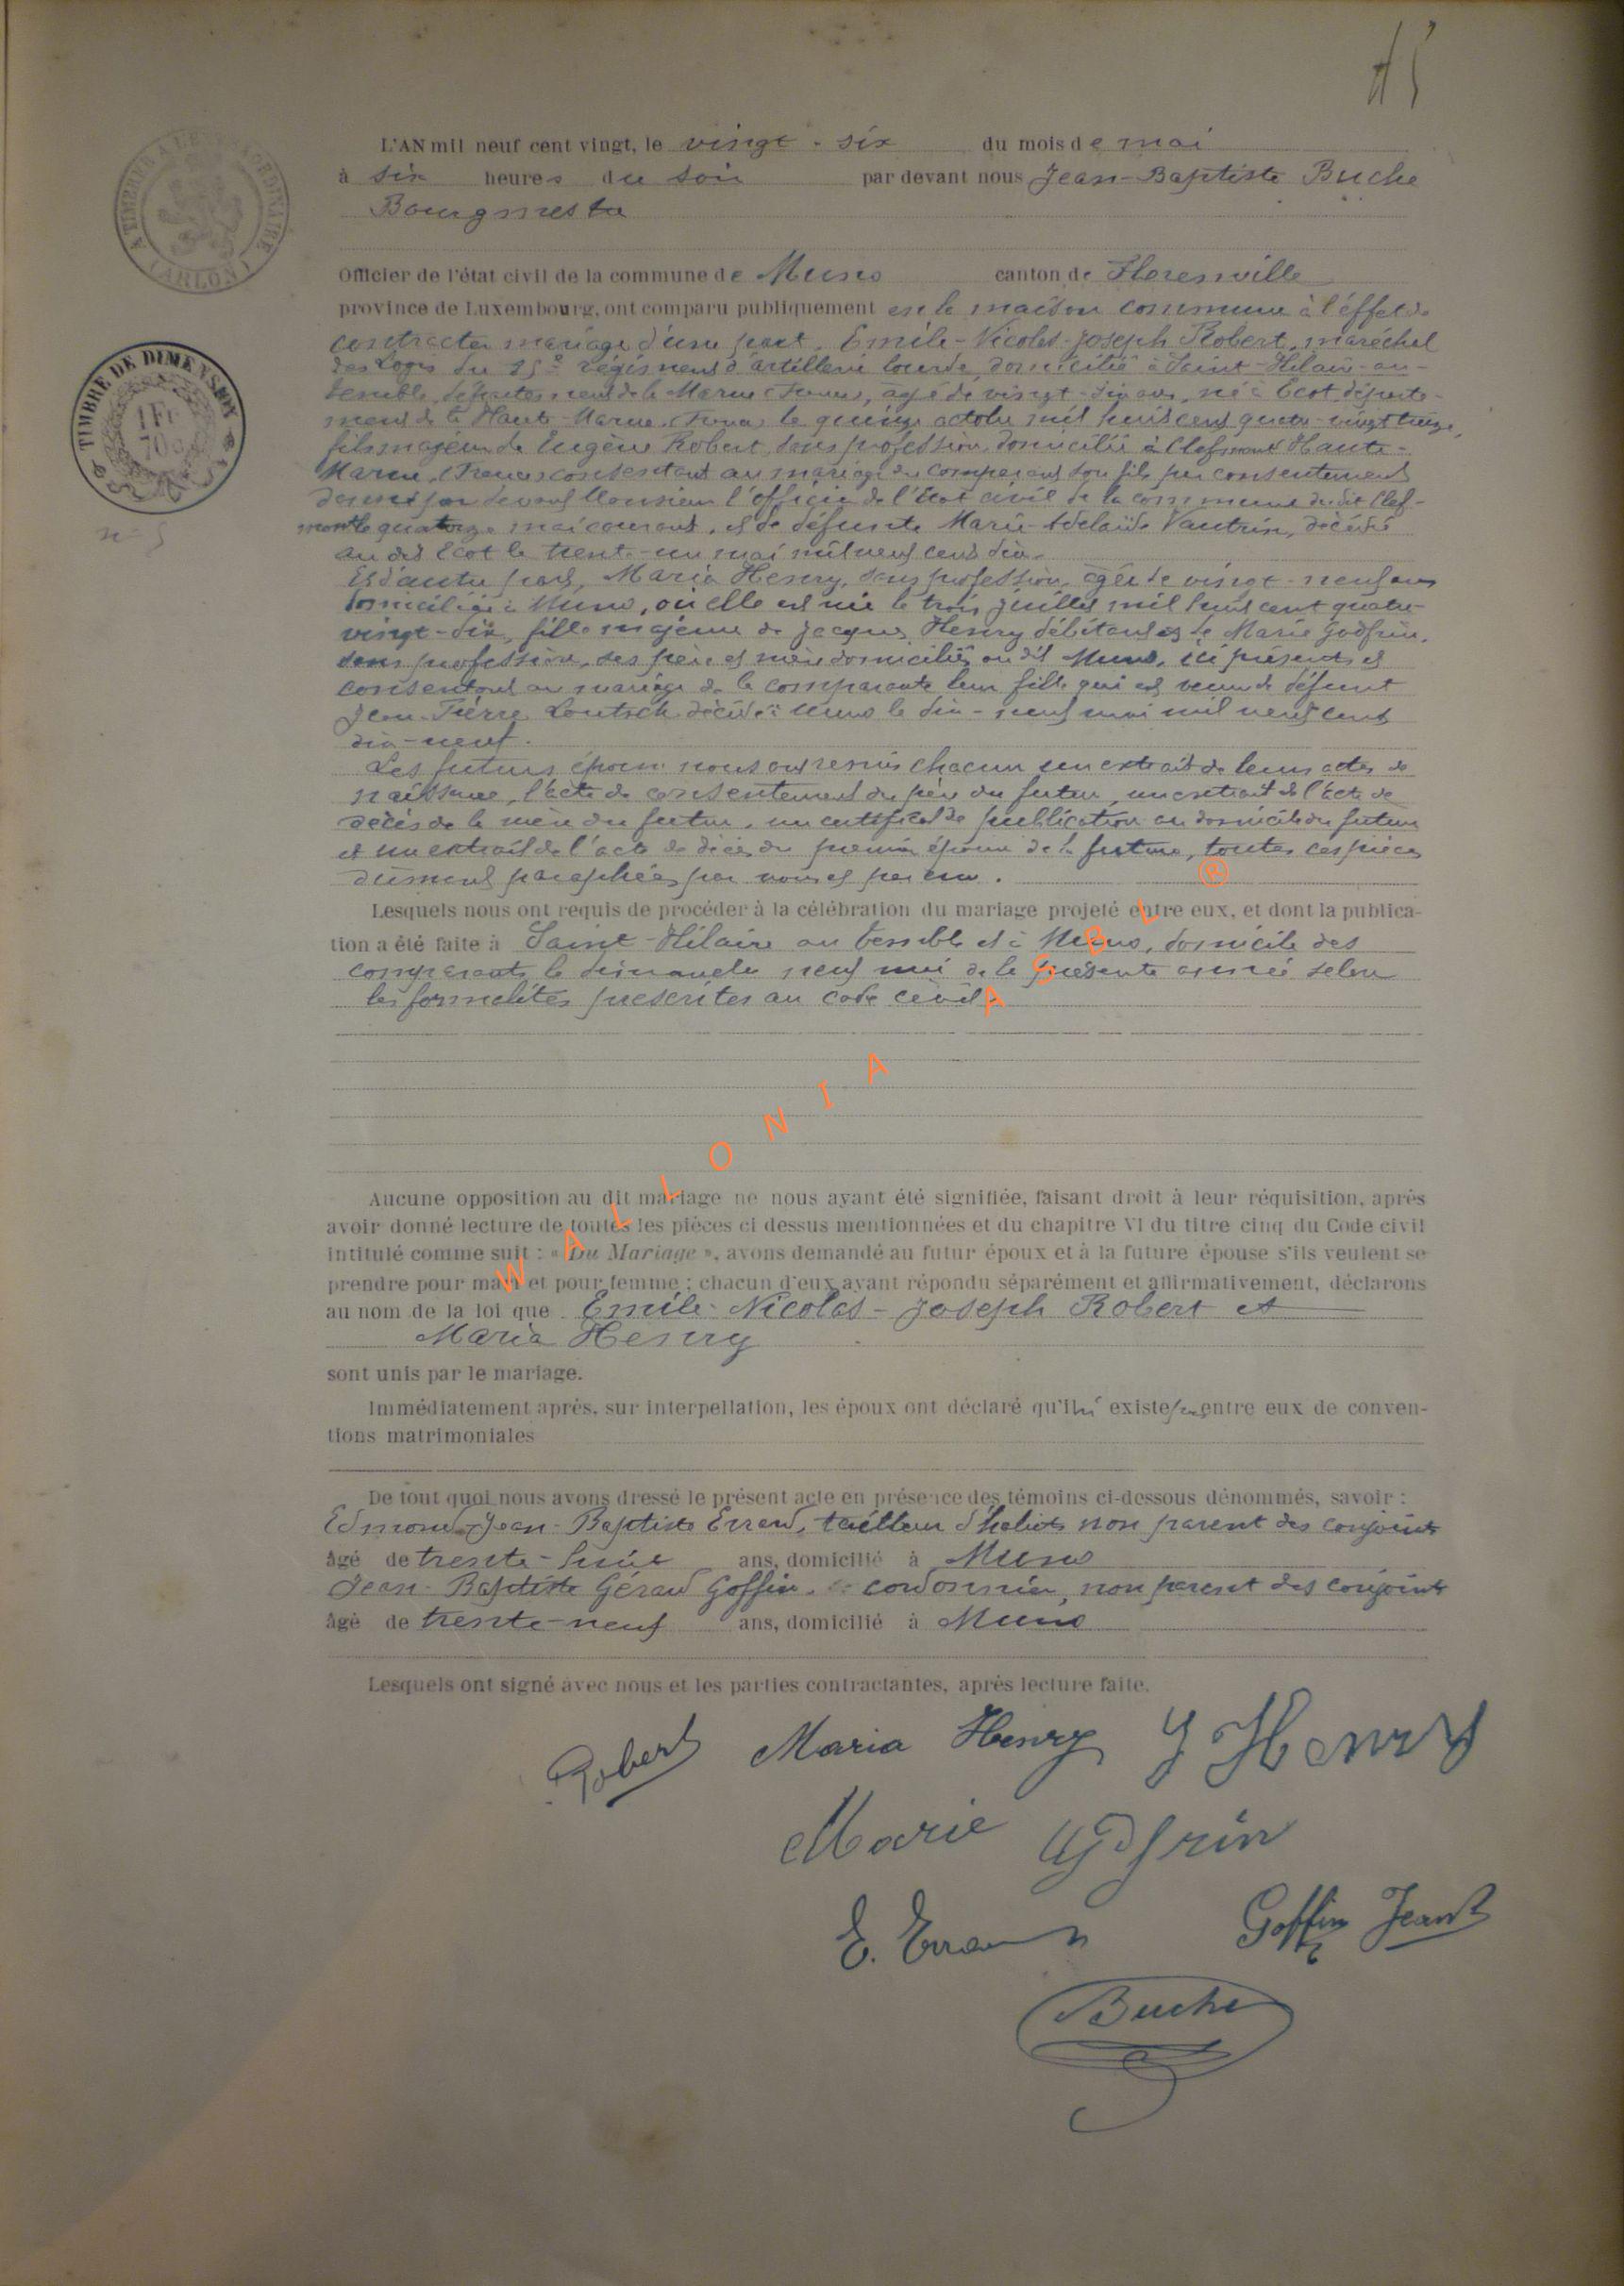 L'AN mil neuf cent vingt, le vingt-six du mois de mai
à six heures du soir par devant nous Jean-Baptiste Buche
Bourgmestre
A TIMBRER A L'EXTRAORDINAIRE
(ARLON)
Officier de l'état civil de la commune de Muno canton de Florenville
province de Luxembourg, ont comparu publiquement en la maison commune à l'effet de
contracter mariage d'une part, Emile-Nicolas-Joseph Robert, maréchal
TIMBRE DE DIMENSION
1 Fr
70 c
n° 5
des Logis du 25e régiment d'artillerie lourde, domicilié à Saint-Hilaire-au-
Temple, département de la Marne (France, agé de vingt-six ans, né à Ecot, départe-
ment de la Haute-Marne (France) le quinze octobre mil huit cent quatre-vingt treize,
fils majeur de Eugène Robert, sans profession, domicilié à Clefmont Haute-
Marne, (France) consentant au mariage du comparant son fils par consentement
donné par devant Monsieur l'officier de l'état civil de la commune du dit Clef-
mont le quatorze mai courant, et de défunte Marie-Adelaïde Vautrin, décédée
au dit Ecot le trente-un mai mil neuf cent dix.
Et d'autre part, Maria Henry, sans profession, âgée de vingt-neuf ans
domiciliée à Muno, où elle est née le trois juillet mil huit cent quatre-
vingt-dix, fille majeure de Jacques Henry débitant et de Marie Godfrin,
sans profession, ses père et mère domiciliés au dit Muno, ici présents et
consentant au mariage de la comparante leur fille qui est veuve de défunt
Jean-Pierre Loutsch décédé à Muno le dix-neuf mai mil neuf cent
dix-neuf.
Les futurs époux nous ont remis chacun un extrait de leurs actes de
naissance, l'acte de consentement du père du futur, un extrait de l'acte de
décès de la mère du futur, un certificat de publication au domicile du futur
et un extrait de l'acte de décès du premier époux de la future, toutes ces pièces
dument paraphées par nous et par eux.
Lesquels nous ont requis de procéder à la célébration du mariage projeté entre eux, et dont la publica-
tion a été faite à Saint-Hilaire au Temple et à Muno, domicile des
comparants le dimanche neuf mai de la présente année selon
les formalités prescrites au code civil.
WALLONIA ASBL ®
Aucune opposition au dit mariage ne nous ayant été signifiée, faisant droit à leur réquisition, après
avoir donné lecture de toutes les pièces ci dessus mentionnées et du chapitre VI du titre cinq du Code civil
intitulé comme suit : « Du Mariage », avons demandé au futur époux et à la future épouse s'ils veulent se
prendre pour mari et pour femme ; chacun d'eux ayant répondu séparément et affirmativement, déclarons
au nom de la loi que Emile-Nicolas-Joseph Robert et
Maria Henry
sont unis par le mariage.
Immédiatement après, sur interpellation, les époux ont déclaré qu'il n'existe pas entre eux de conven-
tions matrimoniales
De tout quoi nous avons dressé le présent acte en présence des témoins ci-dessous dénommés, savoir :
Edmond-Jean-Baptiste Errard, tailleur d'habits non parent des conjoints
âgé de trente-huit ans, domicilié à Muno
Jean-Baptiste Gérard Goffin, cordonnier, non parent des conjoints
âgé de trente-neuf ans, domicilié à Muno
Lesquels ont signé avec nous et les parties contractantes, après lecture faite.
Robert Maria Henry J Henry
Marie Godfrin
E. Errard Goffin Jean B
Buche